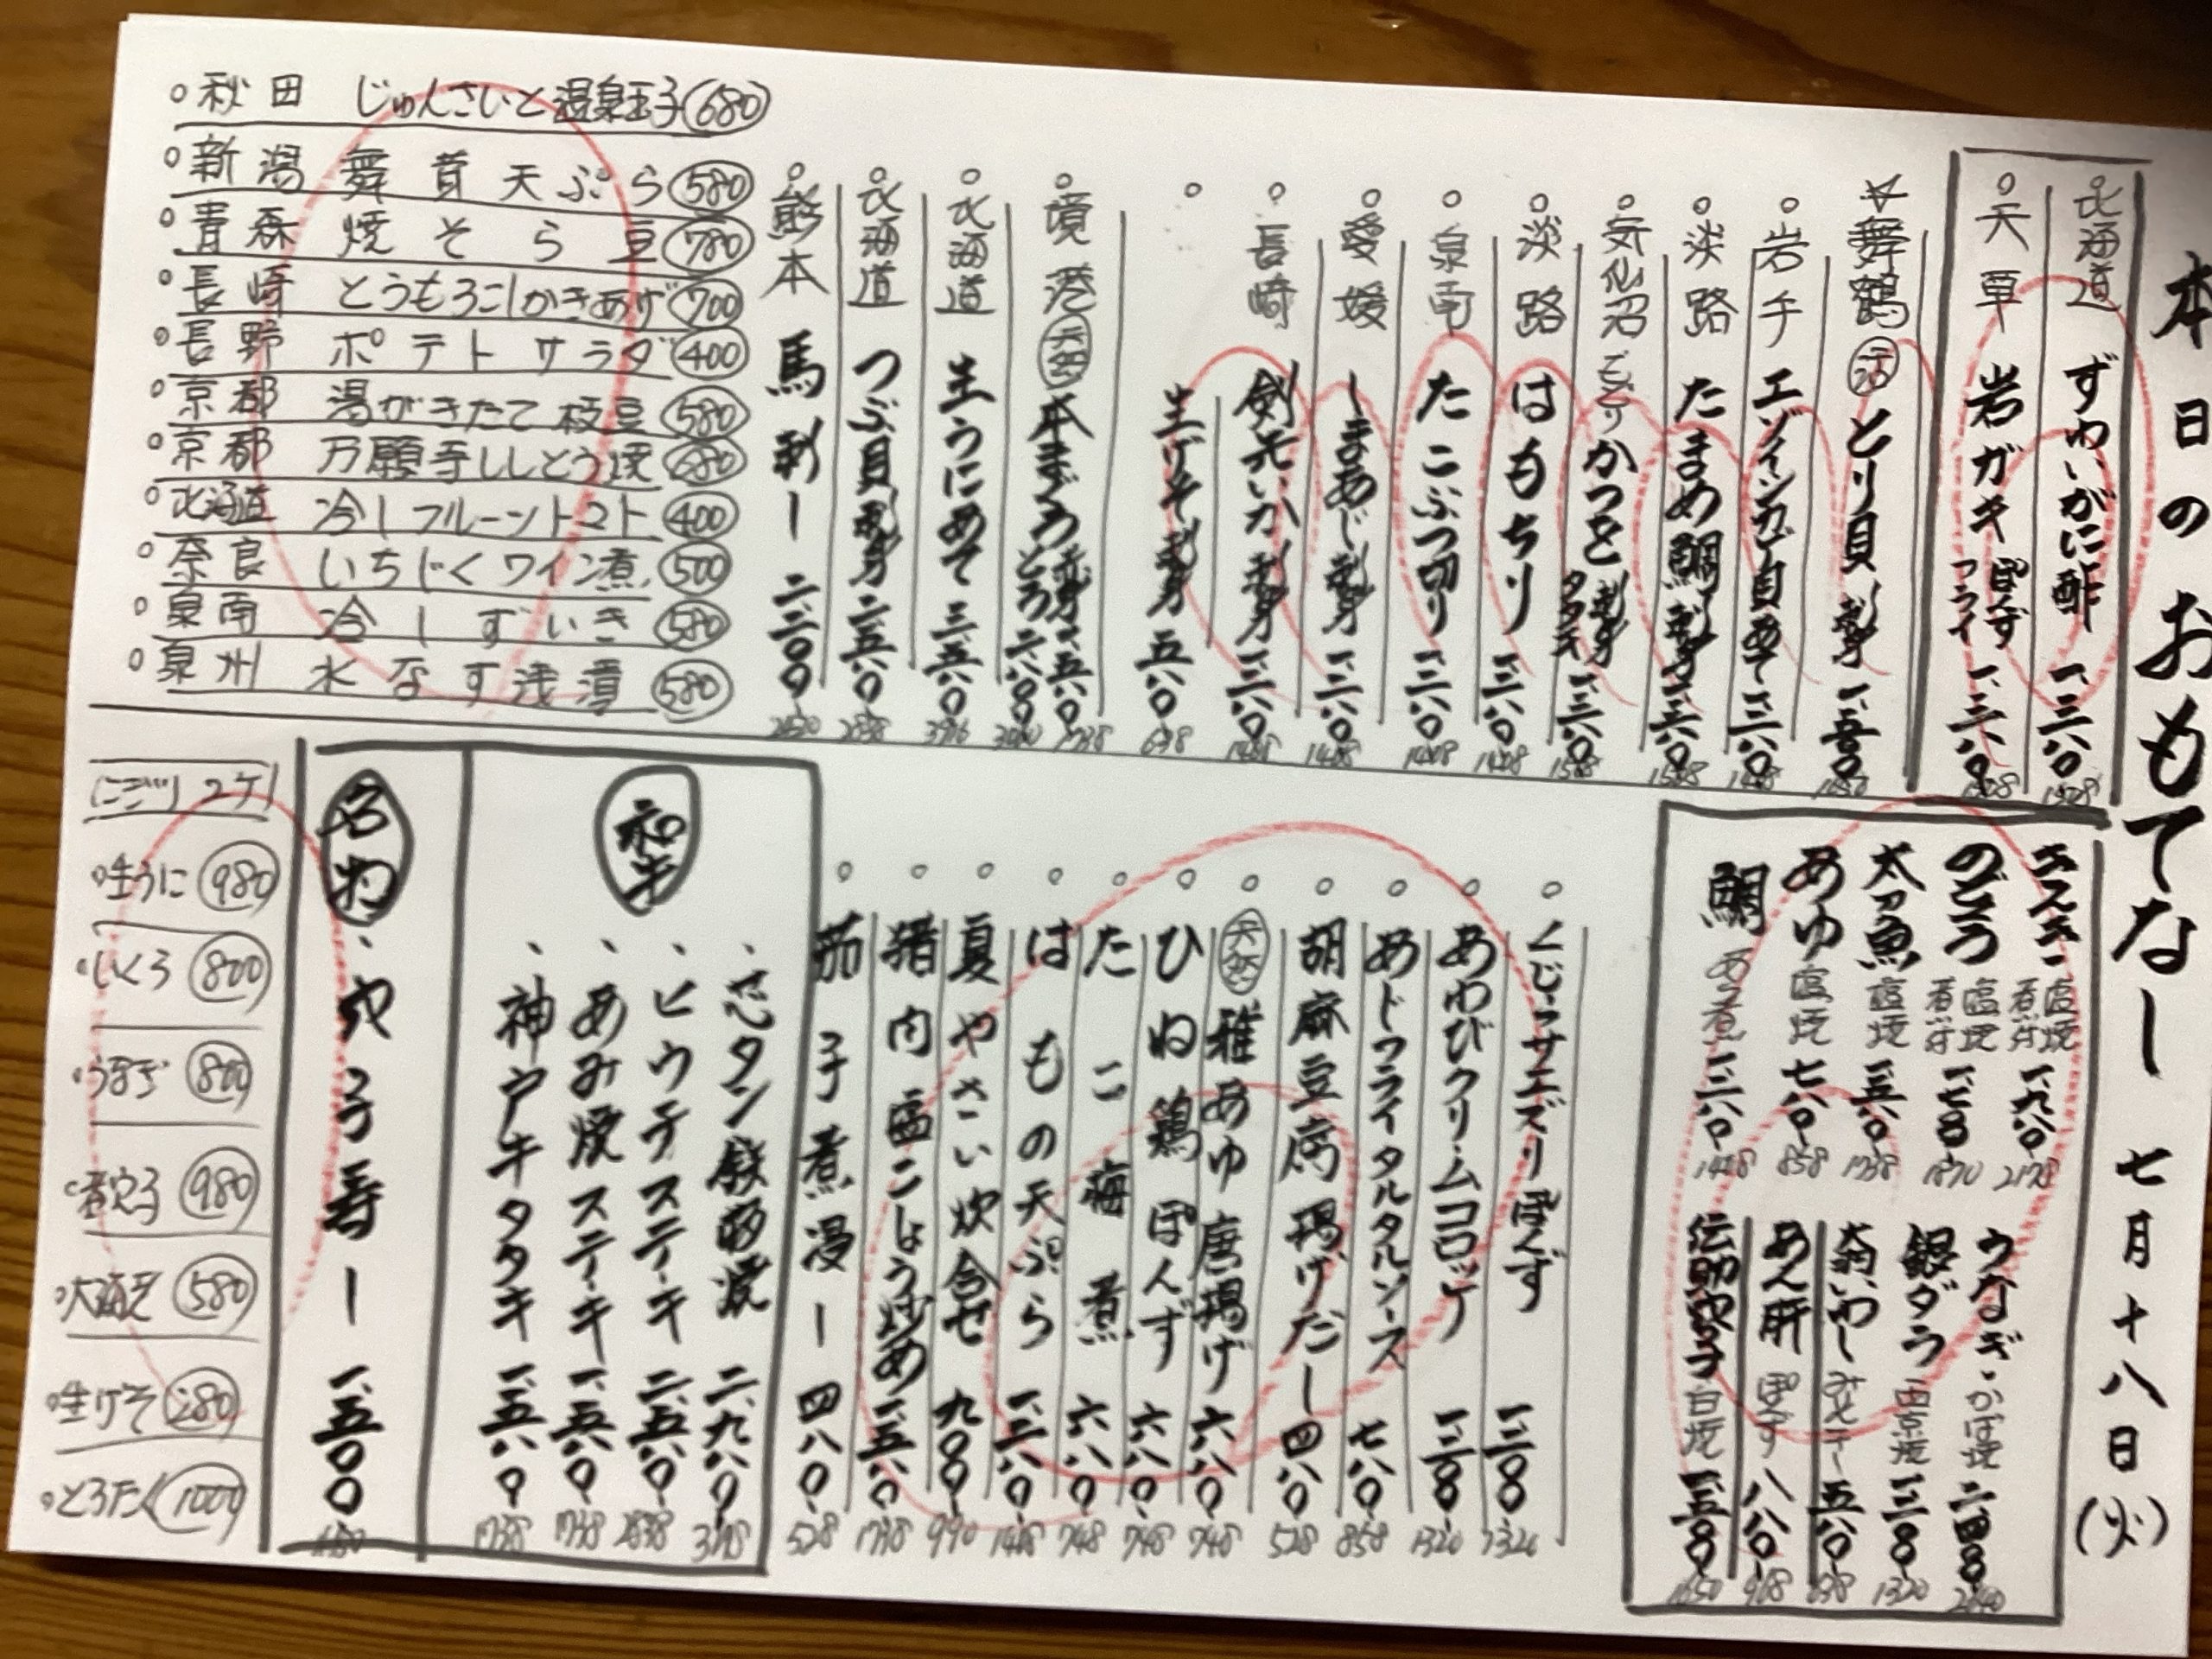 本日のおもてなし 七月十八日(火)
北海道 ずわいがに酢 一、三八〇
天草 岩ガキ ぽんず フライ 一、三八〇
舞鶴 とり貝 刺身
岩手 エゾイシカゲ貝あて 一、三八〇
淡路 たまめ鯛 刺身
気仙沼 もどりかつを 刺身 タタキ
淡路 はもちり 一、三八〇
泉南 たこぶつ切り 一、三八〇
愛媛 しまあじ 刺身 一、三八〇
長崎 剣先いか 刺身 一、三八〇
生げそ 刺身 五八〇
境港 天然 本まぐろ 赤身 一、五八〇 とろ 二、八〇〇
北海道 生うにあて 三、五八〇
北海道 つぶ貝 刺身 二、五八〇
熊本 馬刺し 二、二〇〇
秋田 じゅんさいと温泉玉子 680
新潟 舞茸天ぷら 580
青森 焼そら豆 780
長崎 とうもろこしかきあげ 700
長野 ポテトサラダ 400
京都 湯がきたて枝豆 580
京都 万願寺ししとう焼 680
北海道 冷しフルーツトマト 400
奈良 いちじくワイン煮 500
泉南 冷しずいき 580
泉州 水なす浅漬 580
塩焼 煮付 一、九八〇 2178
のどぐろ 塩焼 煮付 一、七〇〇 1870
太刀魚 塩焼 一、五八〇 1738
あゆ 塩焼 七八〇 858
鯛 あら煮 一、三八〇
うなぎ かば焼 二、四〇〇 2640
銀ダラ 西京焼 一、二〇〇 1320
いわし 五八〇
あん肝 ぽんず 八八〇 968
伝助穴子 白焼 一、五〇〇 1650
くじらサエズリぽんず 一、二〇〇 1320
あわびクリームコロッケ 一、二〇〇 1320
あじフライタルタルソース 七八〇 858
胡麻豆腐揚げだし 四八〇 528
天然 稚あゆ唐揚げ 六八〇 748
ひね鶏ぽんず 六八〇 748
たこ梅煮 六八〇 748
はもの天ぷら 一、三八〇
夏やさい炊合せ 九〇〇 990
猪肉塩こしょう炒め 一、五八〇 1738
茄子煮浸し 四八〇 528
和牛
芯タン 鉄砲焼 二、九八〇
ヒウチステーキ 二、五八〇 2838
あみ焼ステーキ 一、五八〇 1738
神戸牛タタキ 一、五八〇 1738
名物
穴子寿し 一、五〇〇
にぎり 2ケ
生うに 980
いくら 800
うなぎ 800
煮穴子 980
大海老 580
生げそ 280
とろたく 1000